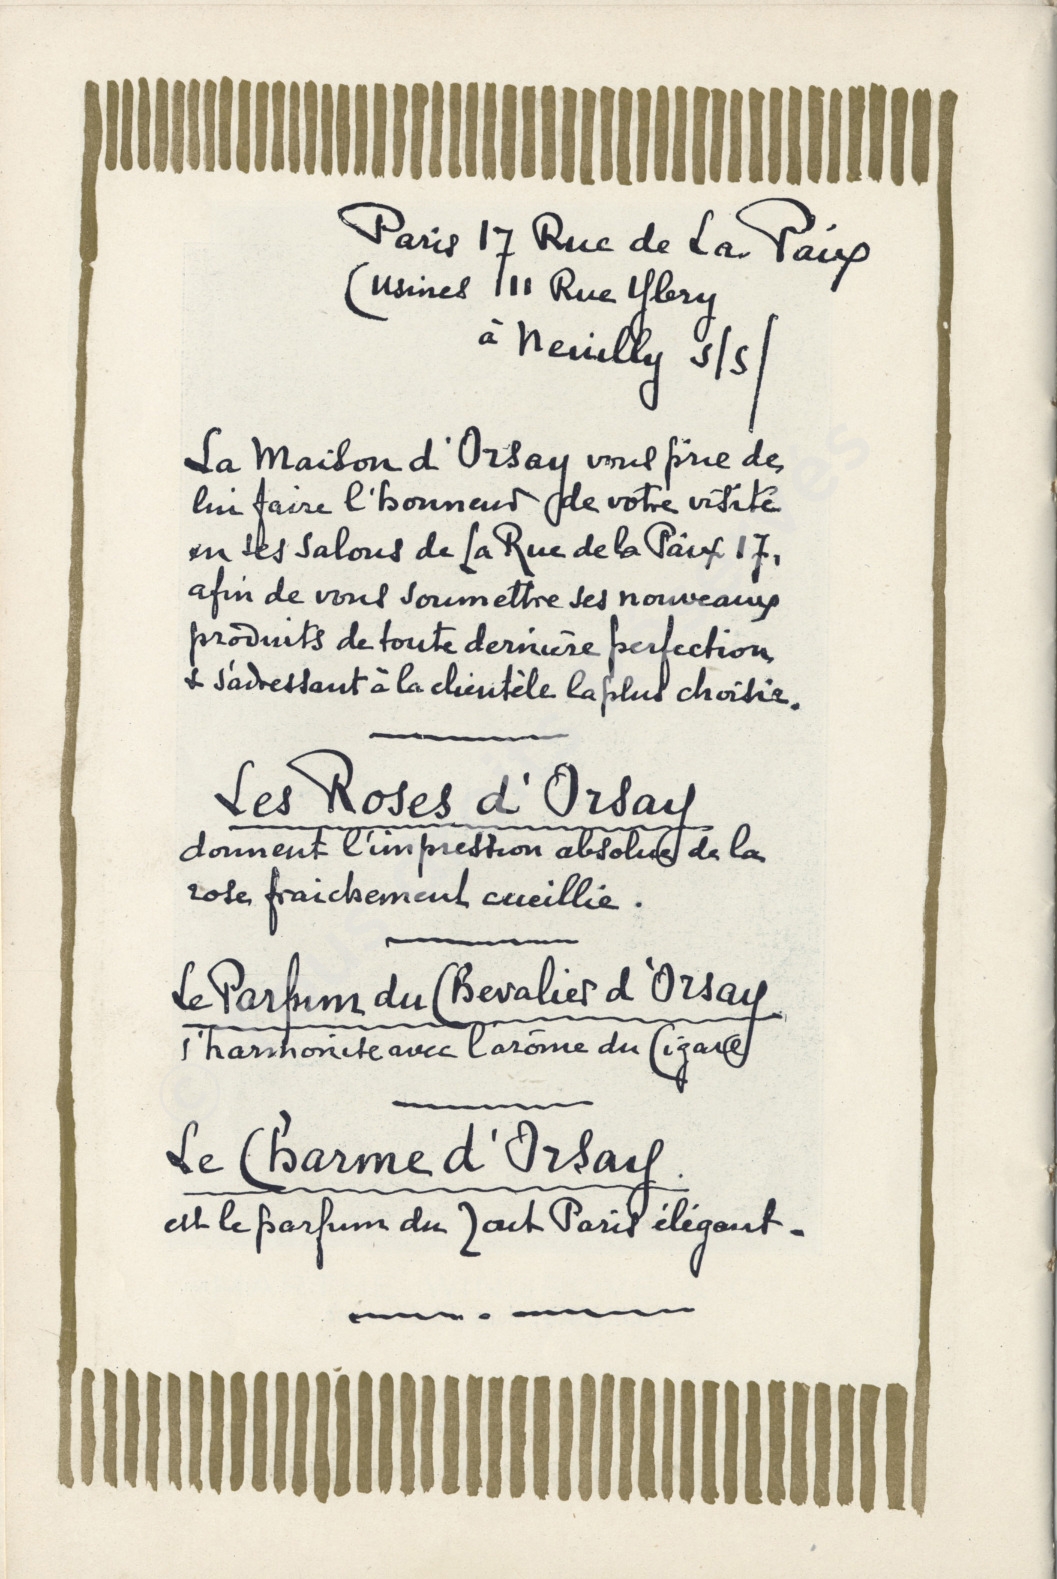 Paris 17 Rue de La Paix
(Usines 111 Rue Ybery
à Neuilly s/s/
La Maison d'Orsay vous prie de
lui faire l'honneur de votre visite
en ses salons de La Rue de la Paix 17,
afin de vous soumettre ses nouveaux
produits de toute dernière perfection
& s'adressant à la clientèle la plus choisie.
Les Roses d'Orsay
donnent l'impression absolue de la
rose fraichement cueillie.
Le Parfum du Chevalier d'Orsay
s'harmonise avec l'arôme du Cigare
Le Charme d'Orsay.
est le parfum du Tout Paris élégant.